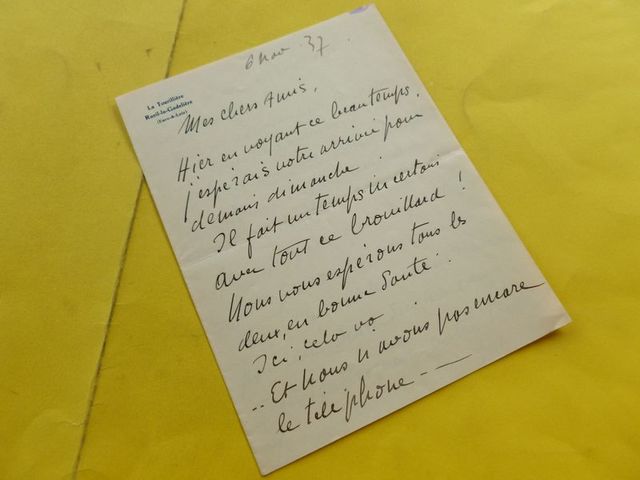 6 Nov. 37
La Touvillière
Rueil-la-Gadelière
(Eure-&-Loir)
Mes chers Amis,
Hier en voyant ce beau temps,
j'espérais votre arrivée pour
demain dimanche.
Il fait un temps incertain
avec tout ce brouillard !
Nous vous espérons tous les
deux, en bonne santé..
Ici, cela va
.. Et nous n'avons pas encore
le téléphone - —